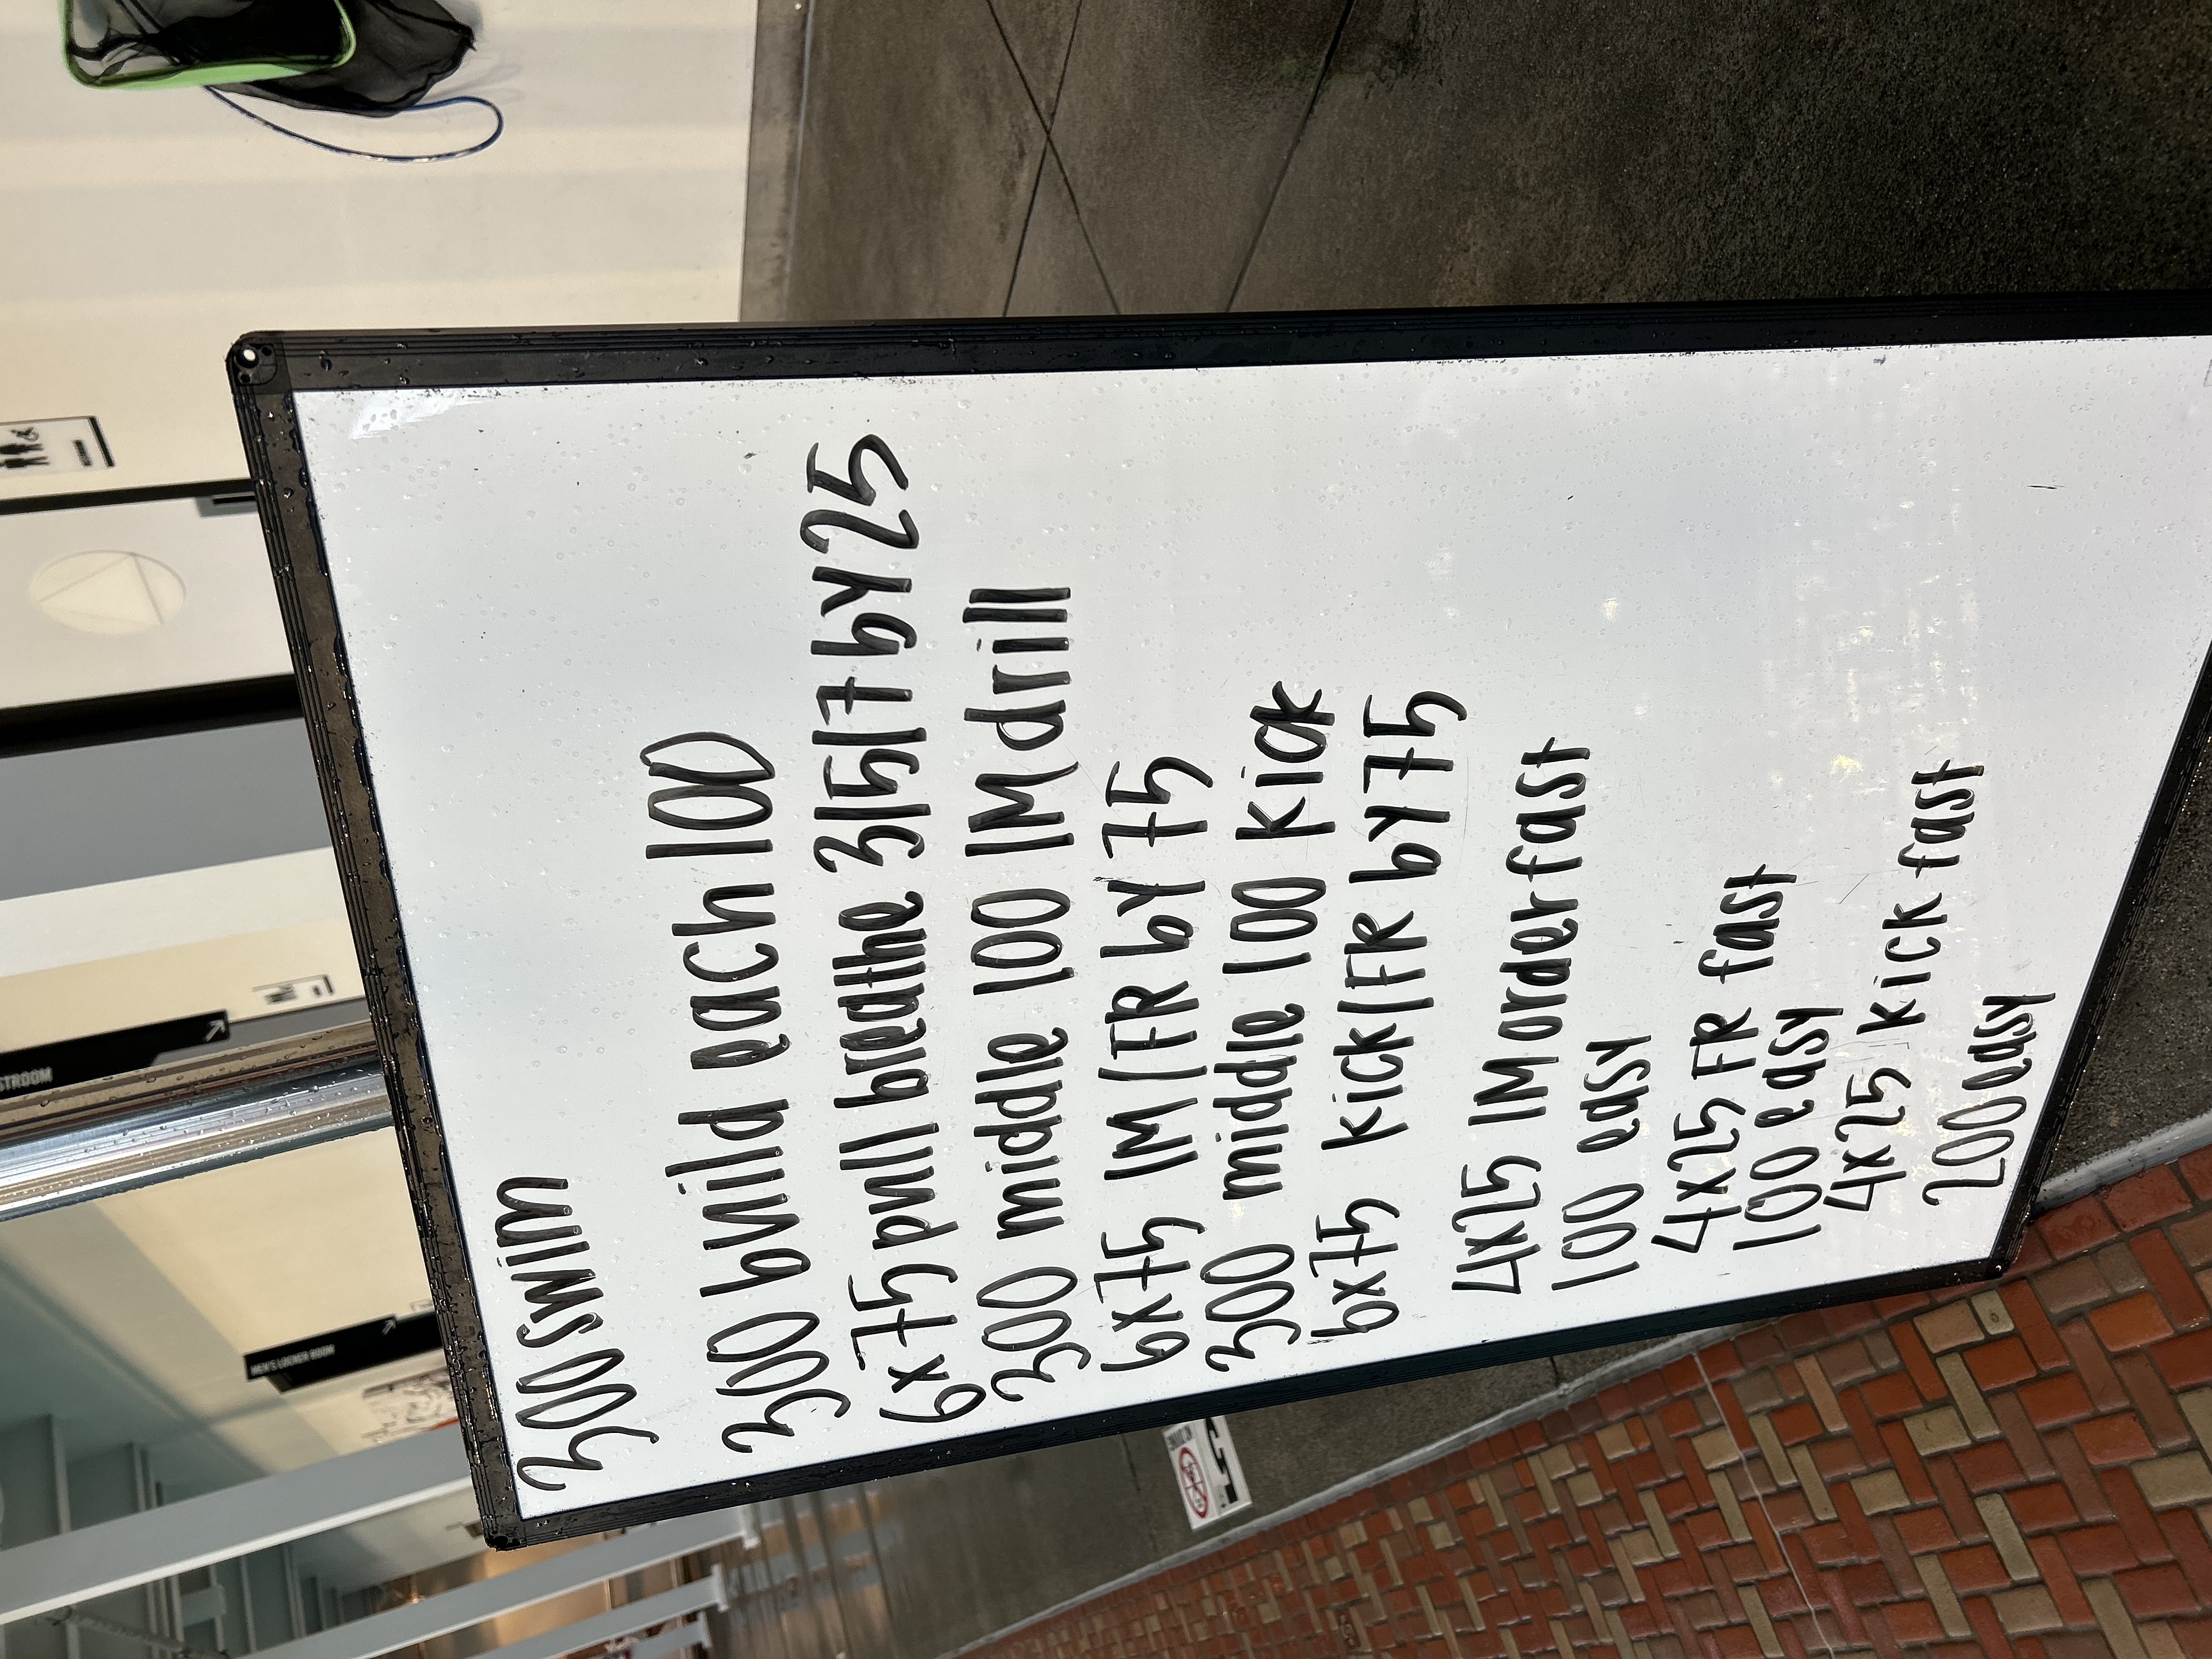 300 swim
300 build each 100
6x75 pull breathe 3/5/7 by 25
300 middle 100 IM drill
6x75 IM/FR by 75
300 middle 100 kick
6x75 kick/FR by 75
4x25 IM order fast
100 easy
4x25 FR fast
100 easy
4x25 kick fast
200 easy
MEN'S LOCKER ROOM